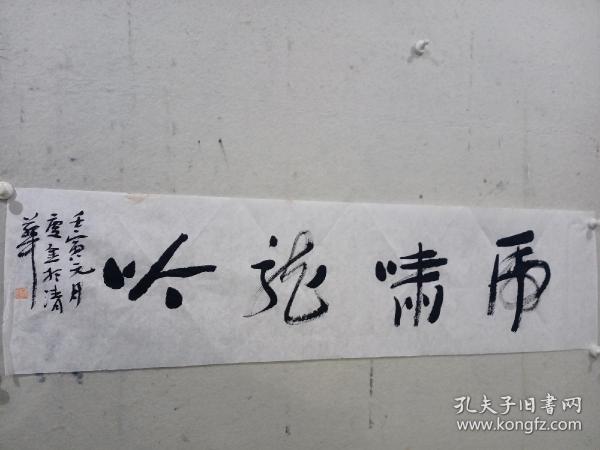 虎啸龙吟
壬寅元月
庆金于清
华
孔夫子旧书网
www.kongfz.com